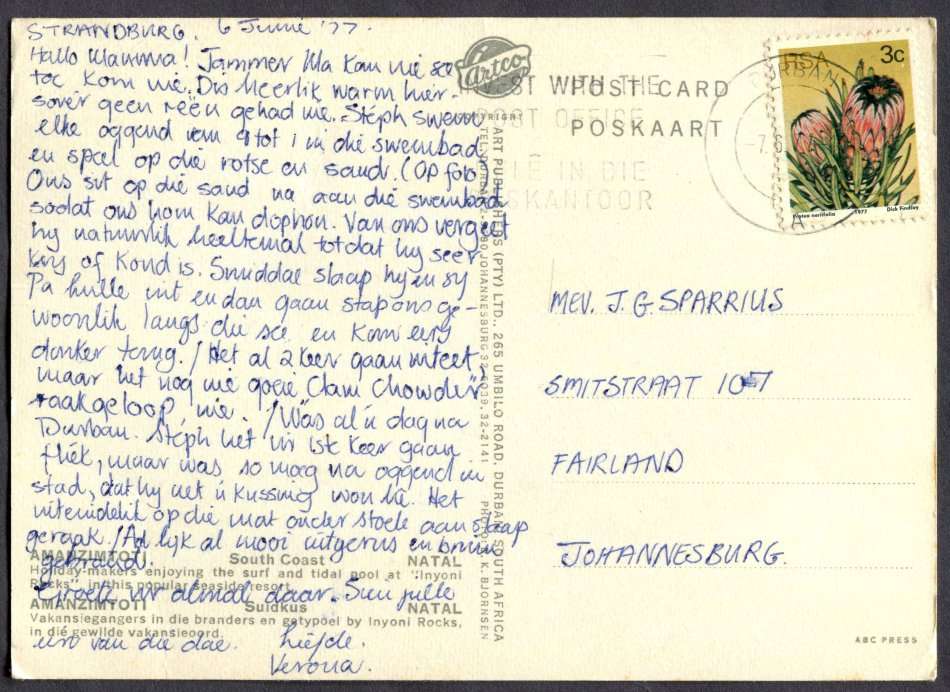 STRANDBURG. 6 Junie '77.
Hallo Mamma! Jammer Ma kan nie so
toe kom nie. Dis heerlik warm hier -
sover geen reën gehad nie. Stéph swem
elke oggend van 9 tot 1 in die swembad
en speel op die rotse en sand. (Op foto)
Ons sit op die sand na aan die swembad
sodat ons hom kan dophou. Van ons vergeet
hy natuurlik heeltemal totdat hy seer
kry of koud is. Smiddae slaap hy en sy
Pa hulle uit en dan gaan stap ons ge-
woonlik langs die see en kom eers
donker terug. / Het al 2 keer gaan uiteet,
maar het nog nie goeie "Clam Chowder"
raakgeloop nie. / Was al 'n dag na
Durban. Stéph het vir 1ste keer gaan
fliek, maar was so moeg na oggend in
stad, dat hy net 'n kussing wou hê. Het
uiteindelik op die mat onder stoele aan slaap
geraak. / Ad lyk al mooi uitgerus en bruin
gebrand.
Groete vir almal daar. Sien julle
een van die dae. Liefde.
Verona.
AMANZIMTOTI South Coast NATAL
Holiday-makers enjoying the surf and tidal pool at "Inyoni
Rocks", in this popular seaside resort.
AMANZIMTOTI Suidkus NATAL
Vakansiegangers in die branders en getypoel by Inyoni Rocks,
in dié gewilde vakansieoord.
Artco
COPYRIGHT
ART PUBLISHERS (PTY) LTD., 265 UMBILO ROAD, DURBAN, SOUTH AFRICA
JOHANNESBURG 32-6039, 32-2141 PHOTO: K. BJORNSEN
POST CARD
POSKAART
WITH THE
POST OFFICE
IN DIE
POSKANTOOR
DURBAN
RSA 3c
Protea neriifolia 1977 Dick Findlay
MEV. J.G SPARRIUS
SMITSTRAAT 107
FAIRLAND
JOHANNESBURG.
ABC PRESS